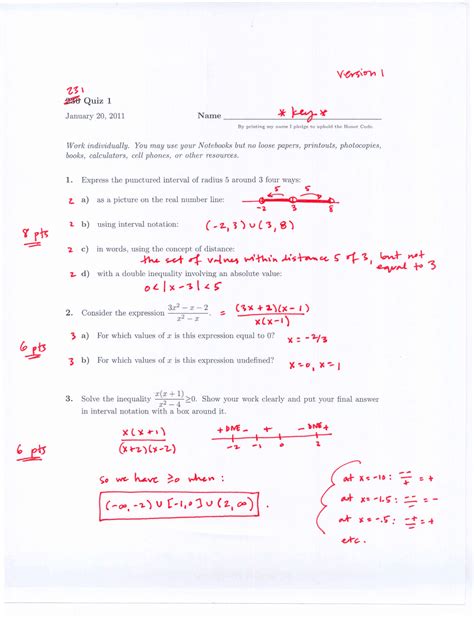 Version 1
231
230 Quiz 1
January 20, 2011 Name * key *
By printing my name I pledge to uphold the Honor Code.
Work individually. You may use your Notebooks but no loose papers, printouts, photocopies,
books, calculators, cell phones, or other resources.
1. Express the punctured interval of radius 5 around 3 four ways:
2 a) as a picture on the real number line: 5 5 -2 3 8
8 pts
2 b) using interval notation: (-2,3) ∪ (3,8)
2 c) in words, using the concept of distance:
the set of values within distance 5 of 3, but not
equal to 3
2 d) with a double inequality involving an absolute value:
0<|x-3|<5
2. Consider the expression (3x² − x − 2)/(x² − x). = (3x+2)(x-1)/x(x-1)
6 pts
3 a) For which values of x is this expression equal to 0? x = -2/3
3 b) For which values of x is this expression undefined? x=0, x=1
3. Solve the inequality x(x+1)/(x²−4) ≥0. Show your work clearly and put your final answer
in interval notation with a box around it.
6 pts
x(x+1)/(x+2)(x-2)
+ DNE - + - DNE +
-2 -1 0 2
so we have ≥0 when:
(-∞,-2) ∪ [-1,0] ∪ (2,∞)
at x=-10: --/-- = +
at x=-1.5: --/+- = -
at x=-.5: -+/+- = +
etc.